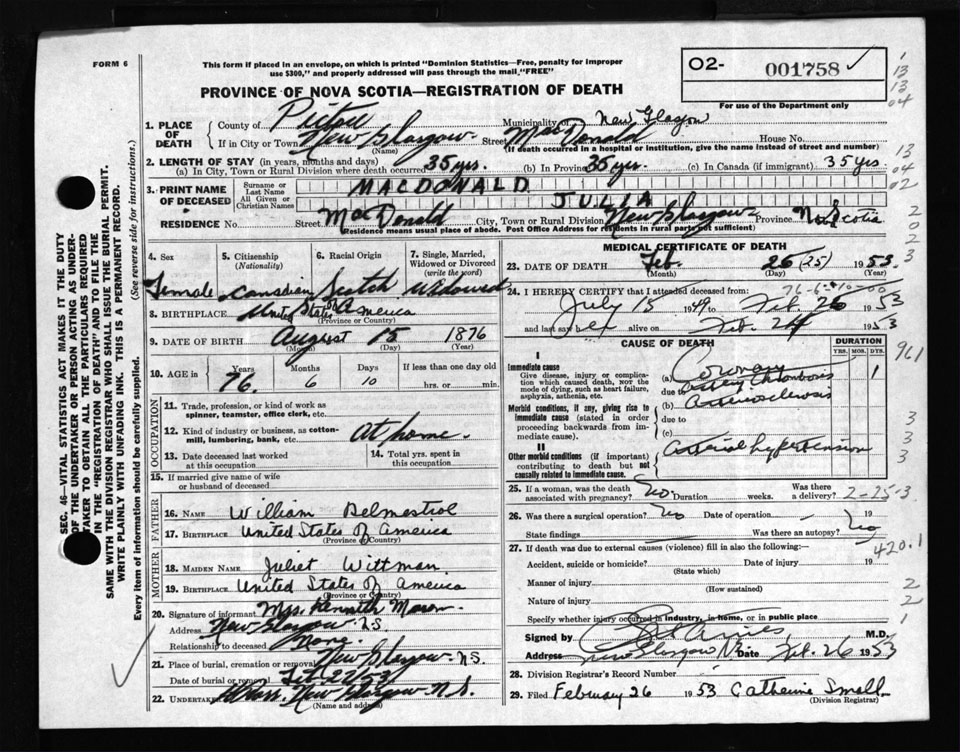 FORM 6
This form if placed in an envelope, on which is printed "Dominion Statistics—Free, penalty for improper
use $300," and properly addressed will pass through the mail "FREE"
PROVINCE OF NOVA SCOTIA—REGISTRATION OF DEATH
O2- 001758 ✓
For use of the Department only
1. PLACE OF DEATH
County of Pictou Municipality of New Glasgow
If in City or Town New Glasgow (Name) Street MacDonald House No.
(If death occurred in a hospital or institution, give the name instead of street and number)
2. LENGTH OF STAY (in years, months and days)
(a) In City, Town or Rural Division where death occurred 35 yrs. (b) In Province 35 yrs. (c) In Canada (if immigrant) 35 yrs
3. PRINT NAME OF DECEASED
Surname or Last Name MACDONALD
All Given or Christian Names JULIA
RESIDENCE No. Street MacDonald City, Town or Rural Division New Glasgow Province N. Scotia
(Residence means usual place of abode. Post Office Address for residents in rural parts not sufficient)
4. Sex Female
5. Citizenship (Nationality) Canadian
6. Racial Origin Scotch
7. Single, Married, Widowed or Divorced (write the word) Widowed
8. BIRTHPLACE United States of America
(Province or Country)
9. DATE OF BIRTH August 15 1876
(Month) (Day) (Year)
10. AGE in Years 76 Months 6 Days 10 If less than one day old hrs. or min.
OCCUPATION
11. Trade, profession, or kind of work as spinner, teamster, office clerk, etc.
12. Kind of industry or business, as cotton-mill, lumbering, bank, etc. At home.
13. Date deceased last worked at this occupation
14. Total yrs. spent in this occupation
15. If married give name of wife or husband of deceased
FATHER
16. NAME William
17. BIRTHPLACE United States of America
(Province or Country)
MOTHER
18. MAIDEN NAME Juliet Wittman
19. BIRTHPLACE United States of America
(Province or Country)
20. Signature of informant Mrs. Kenneth Mason
Address New Glasgow N.S
Relationship to deceased None.
21. Place of burial, cremation or removal New Glasgow N.S.
Date of burial or removal Feb 27/53
22. UNDERTAKER New Glasgow N.S.
(Name and address)
MEDICAL CERTIFICATE OF DEATH
23. DATE OF DEATH Feb. 26 (25) 1953.
(Month) (Day) (Year)
24. I HEREBY CERTIFY that I attended deceased from:
July 15 1949 to Feb. 26 1953
and last saw her alive on Feb. 24 1953
CAUSE OF DEATH DURATION
YRS. MOS. DYS.
I
Immediate cause
Give disease, injury or complication which caused death, not the mode of dying, such as heart failure, asphyxia, asthenia, etc.
(a) Coronary artery thrombosis 1
due to
(b) Arteriosclerosis
Morbid conditions, if any, giving rise to immediate cause (stated in order proceeding backwards from immediate cause).
due to
(c)
II
Other morbid conditions (if important) contributing to death but not causally related to immediate cause.
Arterial hypertension
25. If a woman, was the death associated with pregnancy? No Duration weeks. Was there a delivery?
26. Was there a surgical operation? No Date of operation 19
State findings Was there an autopsy? No
27. If death was due to external causes (violence) fill in also the following:—
Accident, suicide or homicide? Date of injury 19
(State which)
Manner of injury
(How sustained)
Nature of injury
Specify whether injury occurred in industry, in home, or in public place
Signed by M.D.
Address New Glasgow N.S. Date Feb. 26 1953
28. Division Registrar's Record Number
29. Filed February 26 1953 Catherine Small
(Division Registrar)
SEC. 46—VITAL STATISTICS ACT MAKES IT THE DUTY
OF THE UNDERTAKER OR PERSON ACTING AS UNDER-
TAKER TO OBTAIN ALL THE PARTICULARS REQUIRED
IN THE "REGISTRATION OF DEATH" AND TO FILE THE
SAME WITH THE DIVISION REGISTRAR WHO SHALL ISSUE THE BURIAL PERMIT.
WRITE PLAINLY WITH UNFADING INK. THIS IS A PERMANENT RECORD.
Every item of information should be carefully supplied. (See reverse side for instructions.)
1
13
13
04
13
04
02
2
0
2
2
3
961
3
3
3
2-25-3
420.1
2
2
1